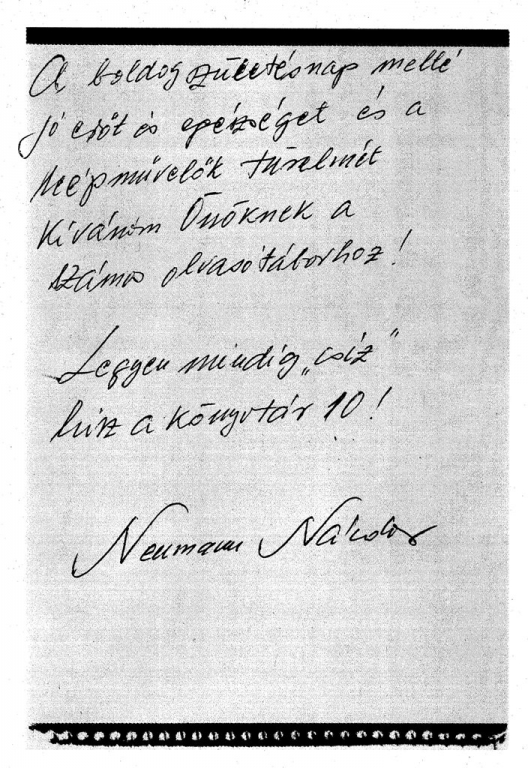 A boldog születésnap mellé
jó erőt és egészséget és a
Népművelők türelmét
Kívánom Önöknek a
számos olvasótáborhoz!
Legyen mindig „csíz”
hisz a könyvtár 10!
Neumann Nándor